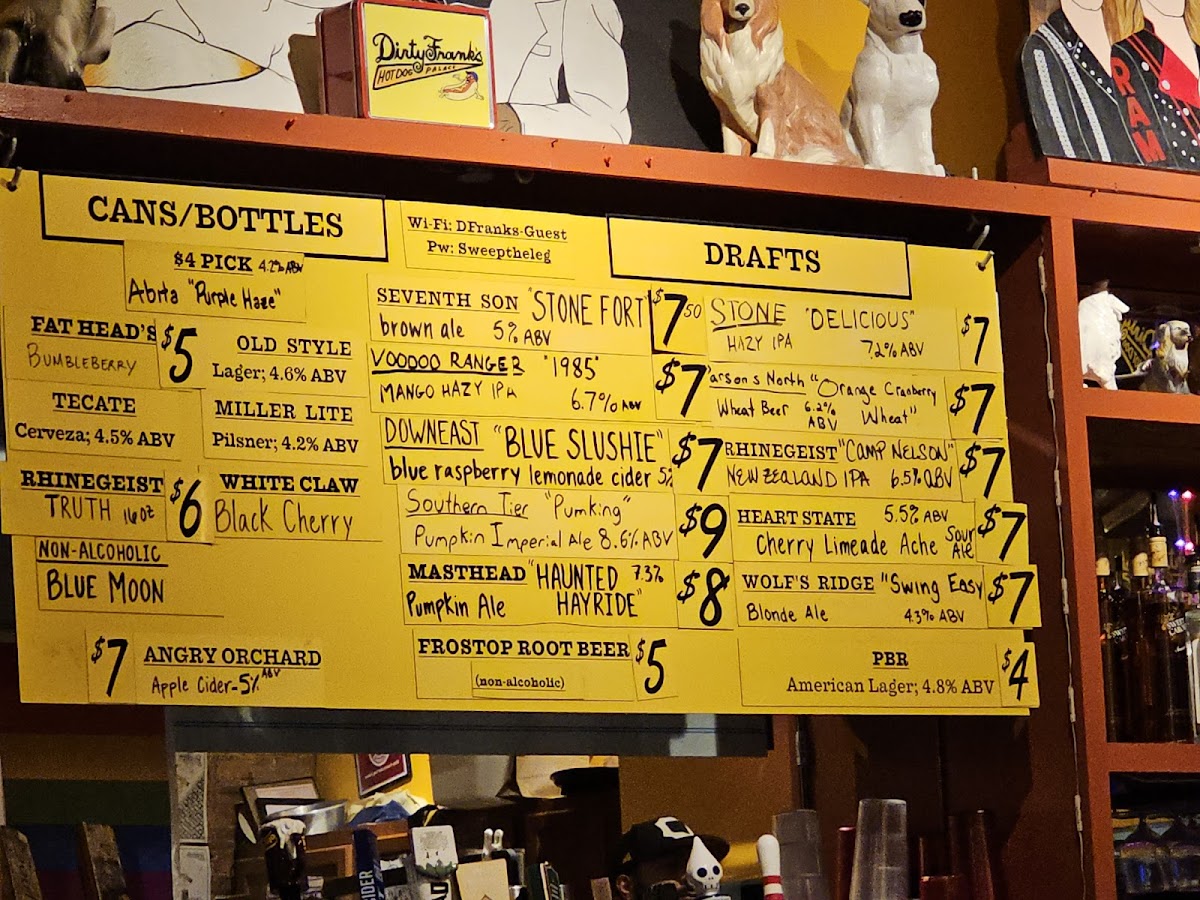 Dirty Frank's
HOT DOG PALACE
RAM
CANS/BOTTLES
Wi-Fi: DFranks-Guest
Pw: Sweeptheleg
DRAFTS
$4 PICK 4.2% ABV
Abita "Purple Haze"
FAT HEAD'S
BUMBLEBERRY
$5
OLD STYLE
Lager; 4.6% ABV
TECATE
Cerveza; 4.5% ABV
MILLER LITE
Pilsner; 4.2% ABV
RHINEGEIST
TRUTH 16oz
$6
WHITE CLAW
Black Cherry
NON-ALCOHOLIC
BLUE MOON
$7
ANGRY ORCHARD
Apple Cider-5% ABV
SEVENTH SON "STONE FORT"
brown ale 5% ABV
$7.50
VOODOO RANGER "1985"
MANGO HAZY IPA 6.7% ABV
$7
DOWNEAST "BLUE SLUSHIE"
blue raspberry lemonade cider 5%
$7
Southern Tier "Pumking"
Pumpkin Imperial Ale 8.6% ABV
$9
MASTHEAD "HAUNTED HAYRIDE" 7.3%
Pumpkin Ale
$8
FROSTOP ROOT BEER
(non-alcoholic)
$5
STONE "DELICIOUS"
HAZY IPA 7.2% ABV
$7
Parsons North "Orange Cranberry Wheat"
Wheat Beer 6.2% ABV
$7
RHINEGEIST "CAMP NELSON"
NEW ZEALAND IPA 6.5% ABV
$7
HEART STATE 5.5% ABV
Cherry Limeade Ache Sour Ale
$7
WOLF'S RIDGE "Swing Easy"
Blonde Ale 4.3% ABV
$7
PBR
American Lager; 4.8% ABV
$4
CIDER